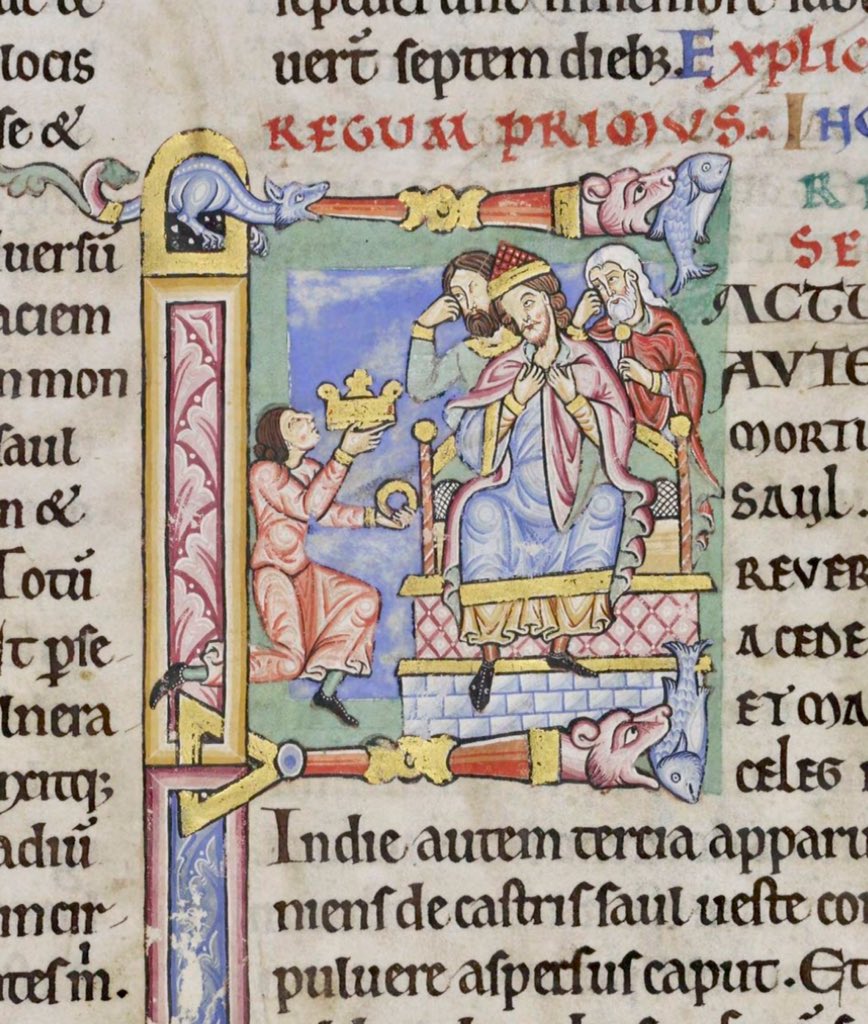 locis
se &
uersũ
aciem
n mon
saul
n &
Totũ
t ꝑse
lnera
adiũ
in cir
tes m̃.
uerũt septem dieb;. Explic
REGUM PRIMVS. INC
R
SE
FACTU
AVTE
MORT
SAUL.
REVER
A CEDE
ET MA
CELEG
In die autem tercia apparu
mens de castris saul ueste co
puluere aspersus caput. Et